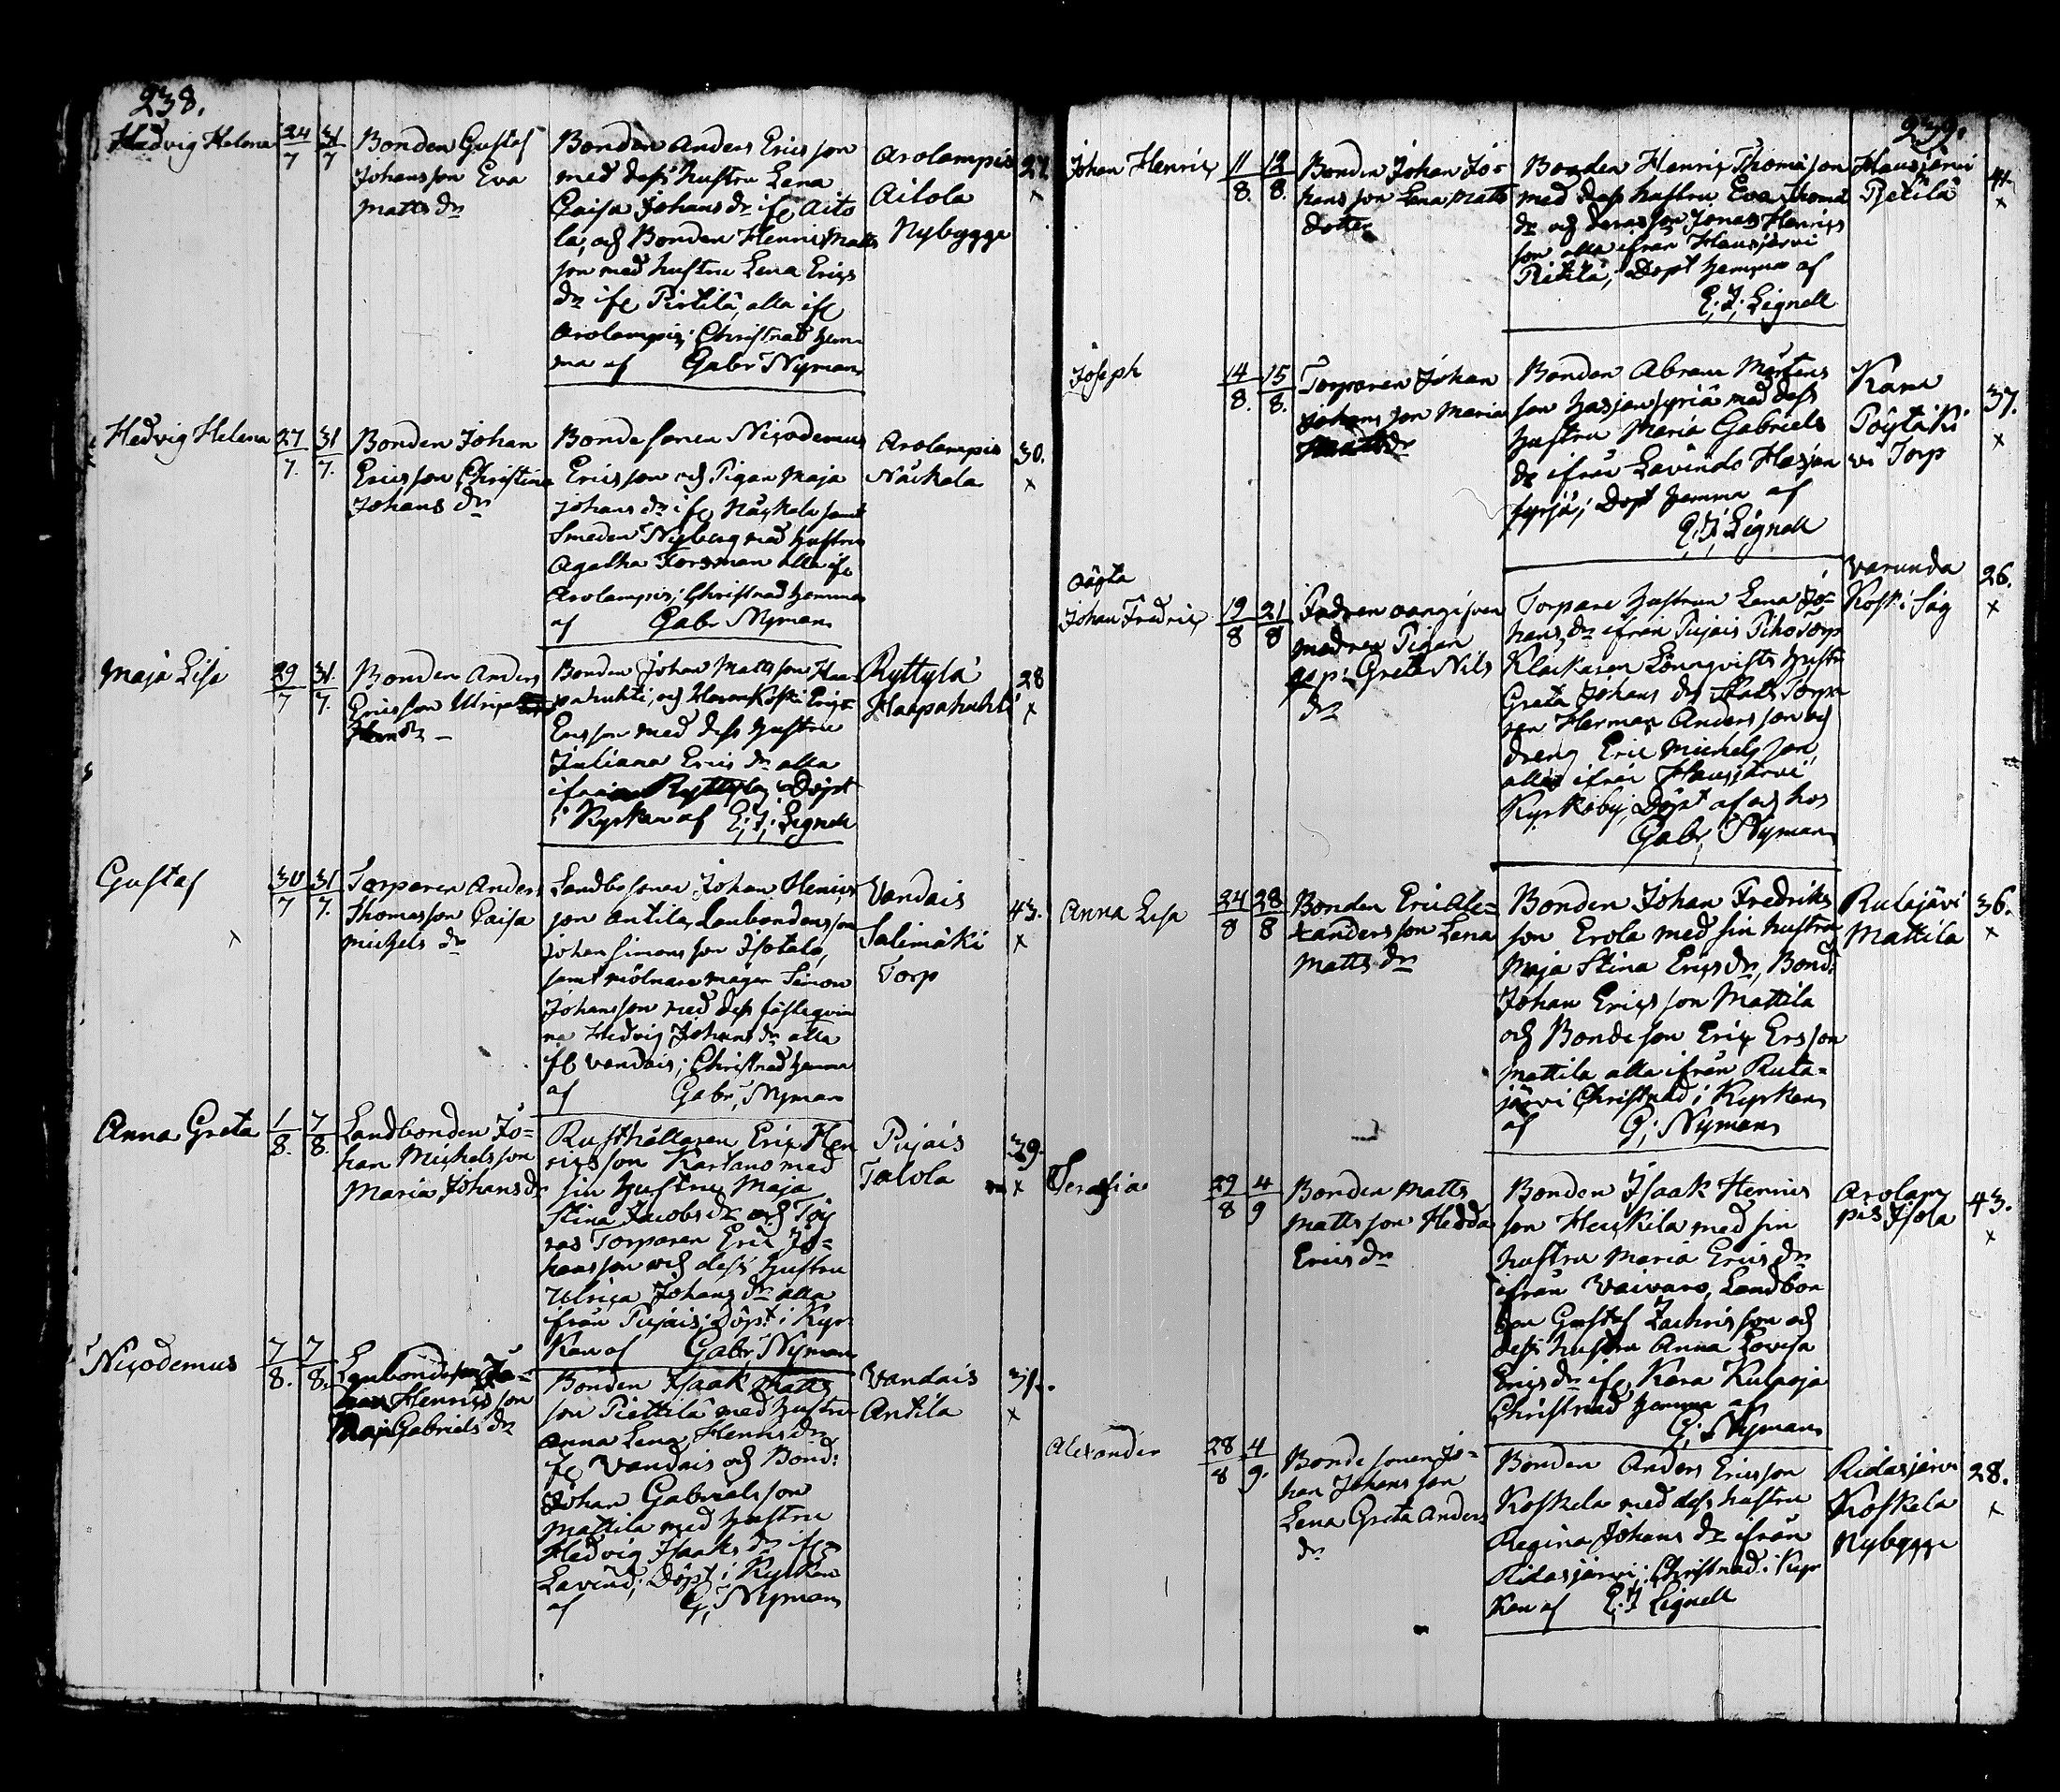 238.
Hedvig Helena 24/7 31/7
Bonden Gustaf
Johansson Eva
Matts dr
Bonden Anders Ericsson
med dess hustru Lena
Caisa Johans dr ifr Aito
la, och Bonden Henric Matts
son med hustru Lena Erics
dr ifr Pirtilä, alla ifr
Arolampis; Christnad hem
ma af Gabr Nyman
Arolampis
Aitola
Nybygge
27
x
Hedvig Helena 27/7. 31/7.
Bonden Johan
Ericsson Christina
Johans dr
Bondesonen Nicodemus
Ericsson och Pigan Maja
Johans dr ifr Näckela samt
Smeden Nyberg med hustru
Agatha Forsman alla ifr
Arolampis; Christnad hemma
af Gabr Nyman
Arolampis
Näckela
30.
x
Maja Lisa 29/7 31./7.
Bonden Anders
Ericsson Ulrica
Bonden Johan Mattsson Haa
pahuhti, och Eric
Ersson med dess hustru
Juliana Erics dr alla
ifrån Ryttylä, Döpt
i Kyrkan af E; J; Lignell
Ryttylä
Haapahuhti
28
x
Gustaf 30/7 31/7.
Torparen Anders
Thomasson Caisa
Michels dr
x
Landbosonen Johan Henrics
son Antila, Lanbondens son
Johan Simonsson Isotalo,
samt mölnare mågen Simon
Johansson med dess fästeqvin
na Hedvig Johans dr alla
ifr Vandais; Christnad hemma
af Gabr, Nyman
Vandais
Salimäki
Torp
43.
x
Anna Greta 1/8. 7/8.
Landbonden Jo=
han Michelsson
Maria Johans dr
Rusthållaren Eric Hen
ricsson Kartano med
sin hustru Maja
Stina Jacobs dr och Töy
ras Torparen Eric Jo=
hansson och dess hustru
Ulrica Johans dr alla
ifrån Pujais; Döpt i Kyr
kan af Gabr, Nyman
Pujais
Talola
39.
x
Nicodemus 7/8. 7/8.
Lanbondeson Jo=
han Henricsson
Maja Gabriels dr
Bonden Isaak Matts
son Piettilä med hustru
Anna Lena Henrics dr
ifr Vandais och Bond:
Johan Gabrielsson
Mattila med hustru
Hedvig Isaaks dr ifr
Lavind; Döpt i Kyrkan
af G; Nyman
Vandais
Antila
31.
x
239.
Johan Henric 11/8. 12/8.
Bonden Johan Jo=
hansson Lena Matts
dotter
Bonden Henric Thomasson
med dess hustru Eva Thoma
dr och deras son Jonas Henrics
son alla ifrån Hausjärvi
Pietilä; Döpt hemma af
E; J; Lignell
Hausjärvi
Pietilä
41.
x
Joseph 14/8. 15/8.
Torparen Johan
Johansson Maria
Matts dr
Bonden Abram Mårtens
son Hasjansyrjä med dess
hustru Maria Gabriels
dr ifrån Lavinds Hasjan
syrjä; Döpt hemma af
E; J; Lignell
Kara
Pöytäki
vi Torp
37.
x
Oägta
Johan Fredric 19/8 21/8
Fadren oangifven
modren Pigan
Greta Nils
dr
Torpare hustrun Lena Jo=
hans dr ifrån Pujais Piho Torp
Klåkaren Lönnqvists hustru
Greta Johans dr Statts Torpa
ren Herman Andersson och
dreng Eric Michelsson
alla ifrån Hausjärvi
Kyrkoby, Döpt af och hos
Gabr, Nyman
Varunda
Koski Såg
26.
x
Anna Lisa 24/8 28/8
Bonden Eric Ale=
xandersson Lena
Matts dr
Bonden Johan Fredriks
son Erola med sin hustru
Maja Stina Erics dr, Bond:
Johan Ericsson Mattila
och Bondeson Eric Ersson
Mattila alla ifrån Ruta=
järvi Christnad i Kyrkan
af G; Nyman
Rutajärvi
Mattila
36.
x
Serafia 29/8 4/9
Bonden Matts
Mattsson Hedda
Erics dr
Bonden Isaak Henrics
son Heickilä med sin
hustru Maria Erics dr
ifrån Vaivaro, Landbon
den Gustaf Zachrisson och
dess hustru Anna Lovisa
Erics dr ifr Kara Kulmoja
Christnad hemma af
G; Nyman
Arolam
pis Isola
43.
x
Alexander 28/8 4/9.
Bondesonen Jo=
han Johansson
Lena Greta Anders
dr
Bonden Anders Ericsson
Koskela med dess hustru
Regina Johans dr ifrån
Ridasjärvi; Christnad i Kyr
kan af E. J Lignell
Ridasjärvi
Koskela
Nybygge
28.
x